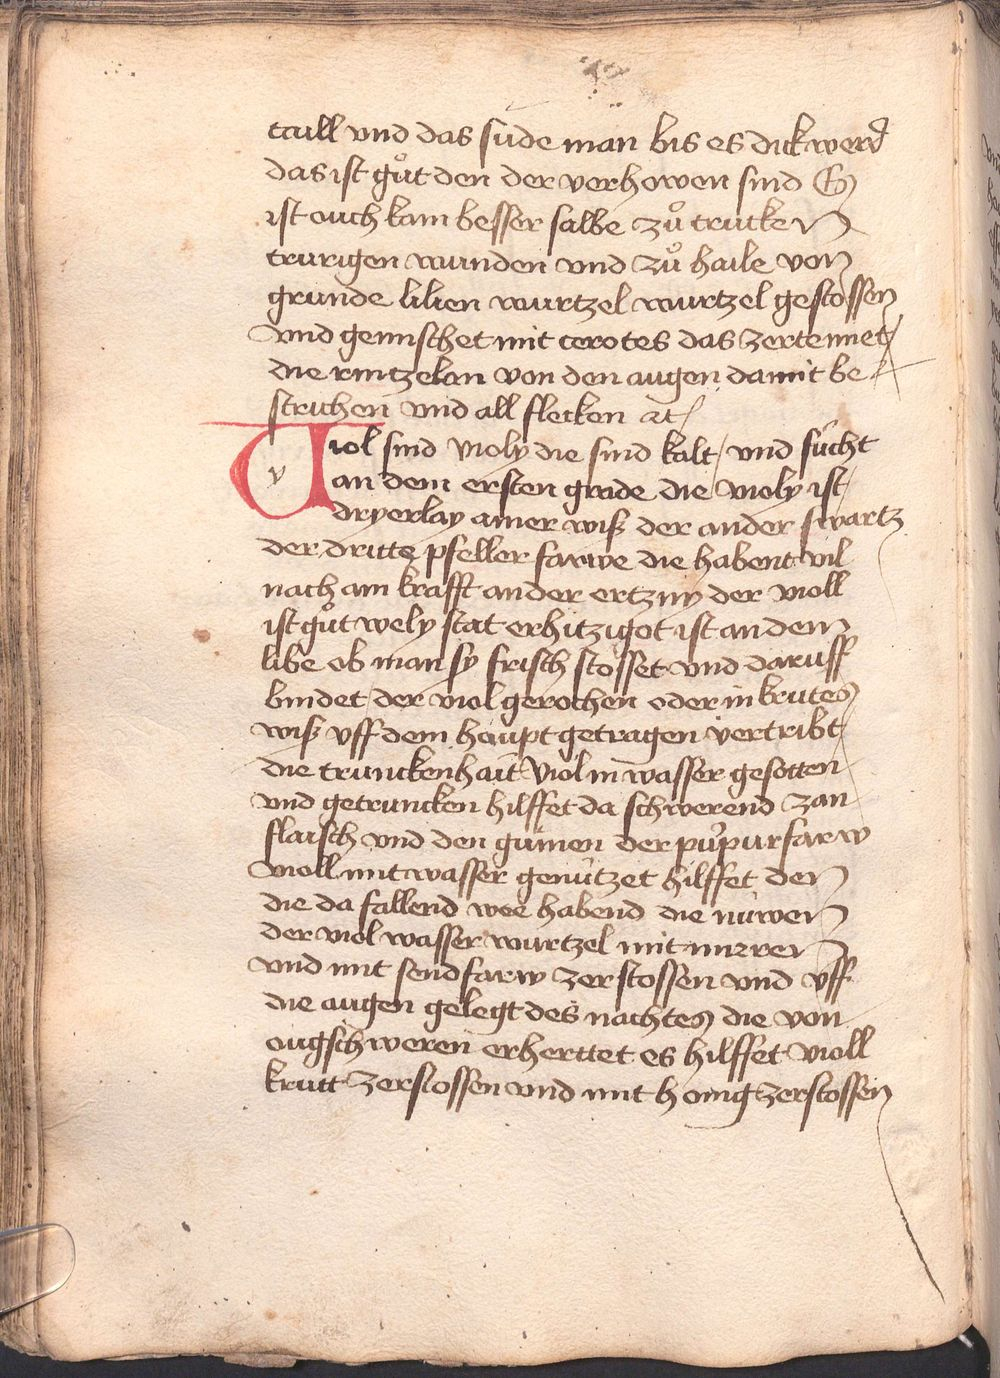 tzull vnd das sude man bis es dick werd
das ist guͦt den der verhowen sind Es
ist ouch kain besser salbe zuͦ trucken
trurigen wunden vnd zuͦ haile von
grunde lilien wurtzel wurtzel gestossen
vnd gemischet mit cerotes das zertennet
die runtzelan von den augen damit be
strichen vnd all flecken ꝛc
Viol sind violy die sind kalt / vnd fücht
an dem ersten grade die violy ist
dryerlay ainer wiß der ander swartz
der dritte pfeller farwe die habent vil
nach ain krafft an der ertzny der violl
ist guͦt wely stat erhitzigot ist an dem
libe ob man sy frisch stosset vnd daruff
bindet / der viol gerochen oder in krutes
wiß vff dem haupt getragen vertribt
die trunckenhait Viol in wasser gesotten
vnd getruncken hilffet da schwerend zan
flaisch vnd den gumen der purpurfarw
violl mit wasser genützet hilffet den
die da fallend wee habend die nuwen
der viol wasser wurtzel mit mirren
vnd mit send farw zerstossen vnd vff
die augen gelegt des nachtes die von
ougschweren erherttet es hilffet violl
krutt zerstossen vnd mit honig zerstossen